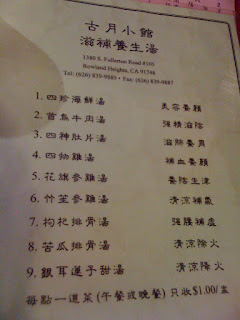 古月小館
滋補養生湯
1380 S. Fullerton Road #105
Rowland Heights, CA 91748
Tel: (626) 839-9889 • Fax: (626) 839-9887
1. 四珍海鮮湯 美容養顏
2. 首烏牛肉湯 強精滋陰
3. 四神肚片湯 滋陰養胃
4. 四物雞湯 補血養顏
5. 花旗參雞湯 養陰生津
6. 竹笙參雞湯 清涼補氣
7. 枸杞排骨湯 強腰補虛
8. 苦瓜排骨湯 清涼除火
9. 銀耳蓮子甜湯 清涼降火
每點一道菜(午餐或晚餐)只收$1.00/盅